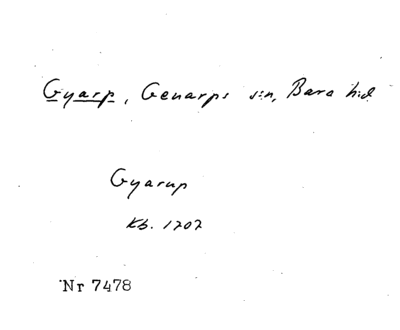 Gyarp, Genarps s:n, Bara h:d
Gyarup
Kb. 1707
Nr 7478